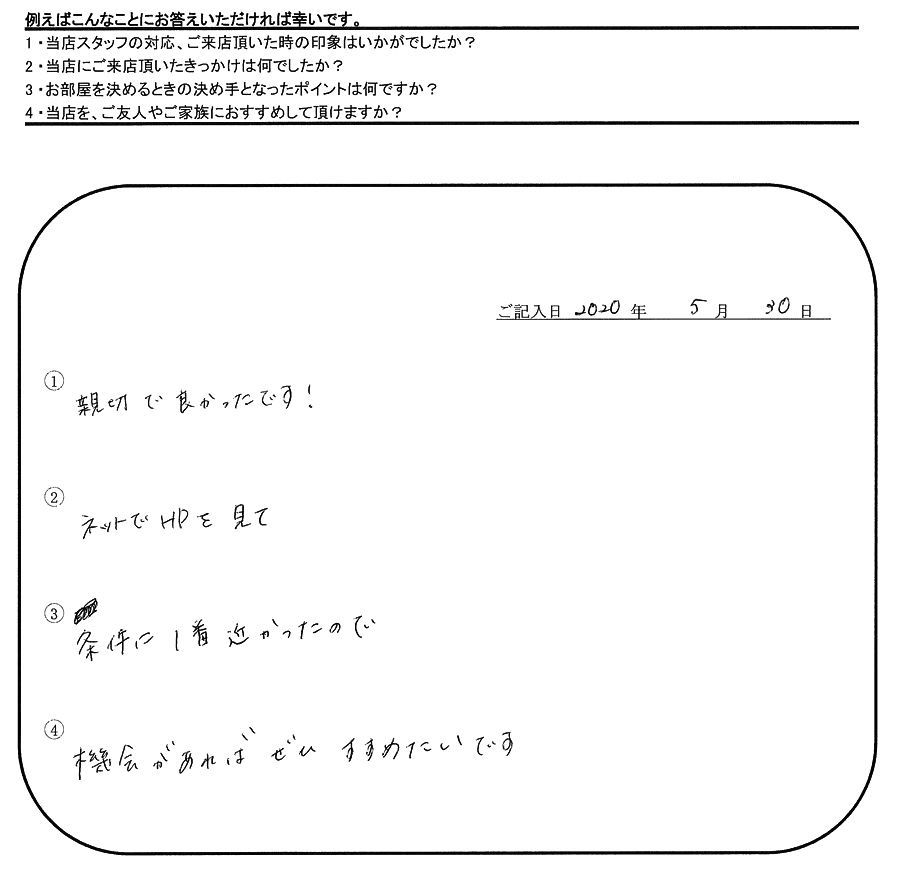 例えばこんなことにお答えいただければ幸いです。
1・当店スタッフの対応、ご来店頂いた時の印象はいかがでしたか？
2・当店にご来店頂いたきっかけは何でしたか？
3・お部屋を決めるときの決め手となったポイントは何ですか？
4・当店を、ご友人やご家族におすすめして頂けますか？
ご記入日 2020 年 5 月 30 日
①
親切で良かったです！
②
ネットでHPを見て
③
条件に1着近かったので
④
機会があればぜひすすめたいです